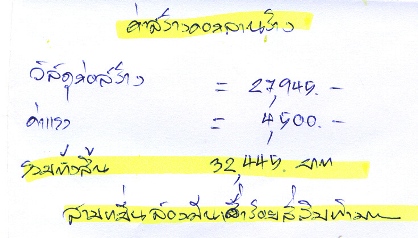 ค่าสร้างคอกลานกว้าง
วัสดุก่อสร้าง = 27,945.-
ค่าแรง = 4,500.-
รวมทั้งสิ้น 32,445. บาท
สามหมื่นสองพันสี่ร้อยสี่สิบห้าบาท